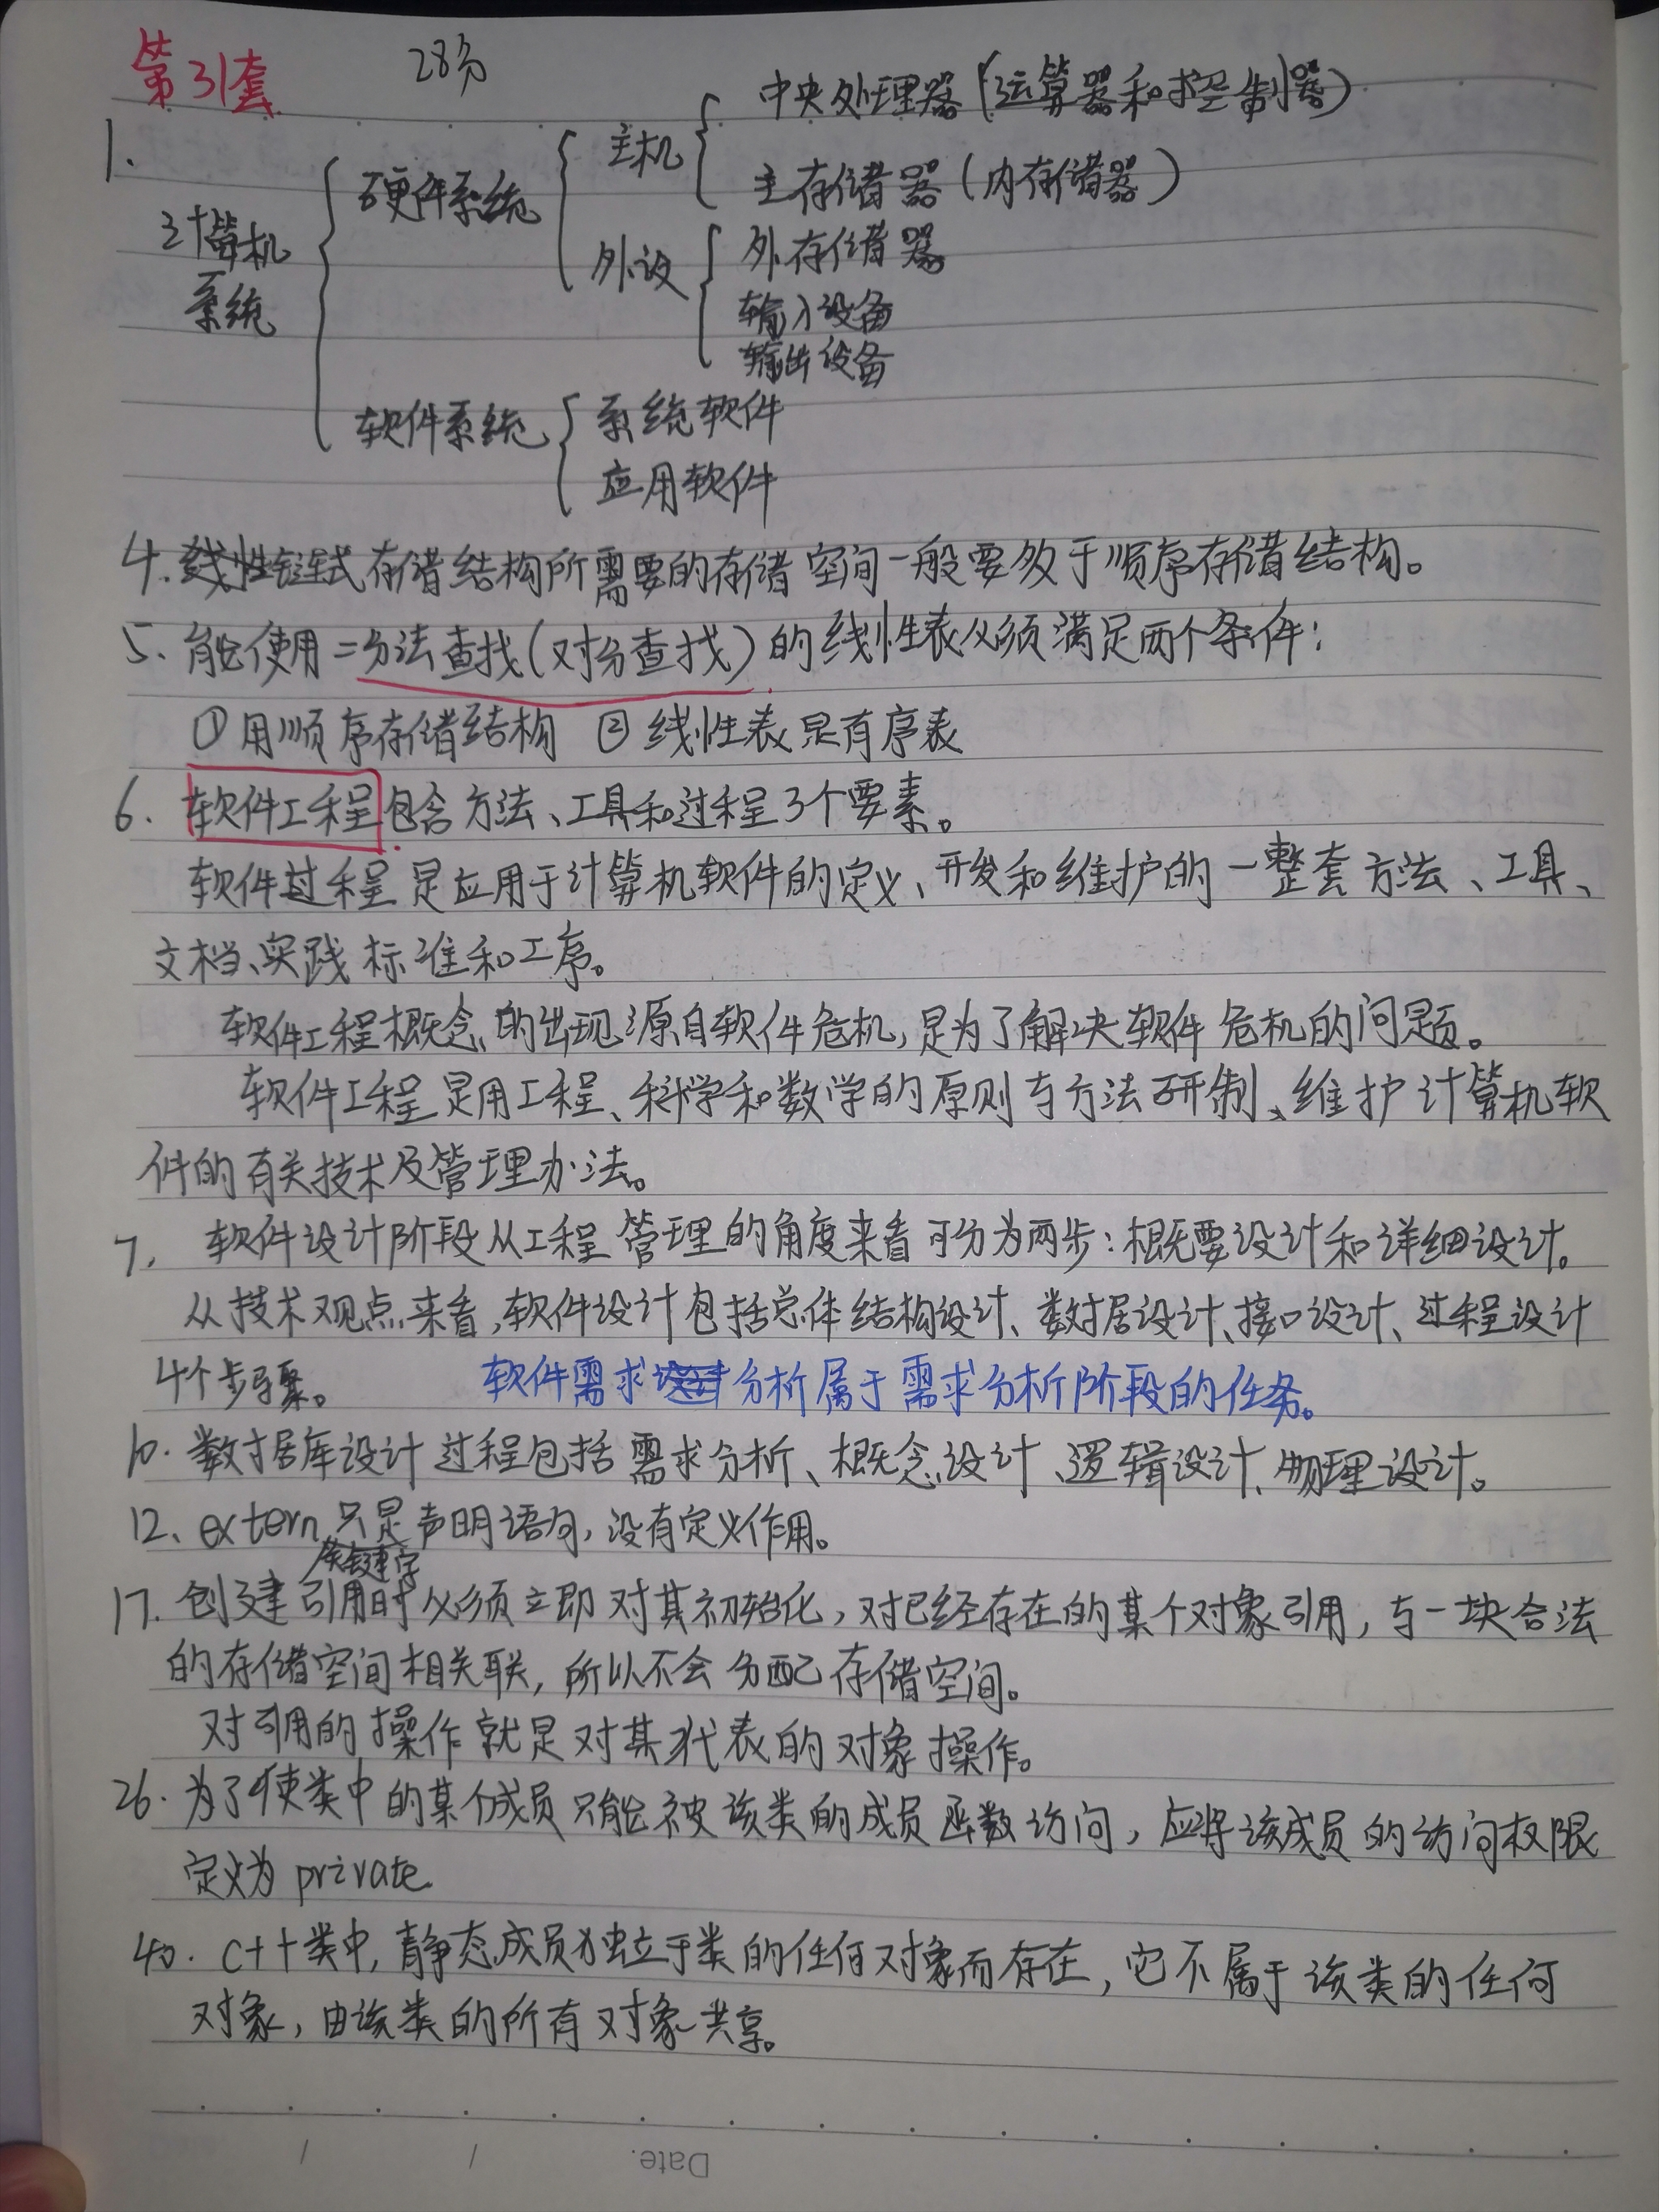 第31套 28分
中央处理器(运算器和控制器)
1. 主机
硬件系统 主存储器(内存储器)
计算机 外设 外存储器
系统 输入设备
输出设备
软件系统 系统软件
应用软件
4. 线性链式存储结构所需要的存储空间一般要多于顺序存储结构。
5. 能使用二分法查找(对分查找)的线性表必须满足两个条件:
①用顺序存储结构 ②线性表是有序表
6. 软件工程包含方法、工具和过程3个要素。
软件过程是应用于计算机软件的定义、开发和维护的一整套方法、工具、
文档、实践标准和工序。
软件工程概念的出现源自软件危机,是为了解决软件危机的问题。
软件工程是用工程、科学和数学的原则与方法研制、维护计算机软
件的有关技术及管理办法。
7. 软件设计阶段从工程管理的角度来看可分为两步:概要设计和详细设计。
从技术观点来看,软件设计包括总体结构设计、数据设计、接口设计、过程设计
4个步骤。 软件需求分析属于需求分析阶段的任务。
10. 数据库设计过程包括需求分析、概念设计、逻辑设计、物理设计。
12、extern只是声明语句,没有定义作用。
关键字
17. 创建引用时必须立即对其初始化,对已经存在的某个对象引用,与一块合法
的存储空间相关联,所以不会分配存储空间。
对引用的操作就是对其代表的对象操作。
26. 为了使类中的某个成员只能被该类的成员函数访问,应将该成员的访问权限
定义为private
40. C++类中,静态成员独立于类的任何对象而存在,它不属于该类的任何
对象,由该类的所有对象共享。
Date. / /